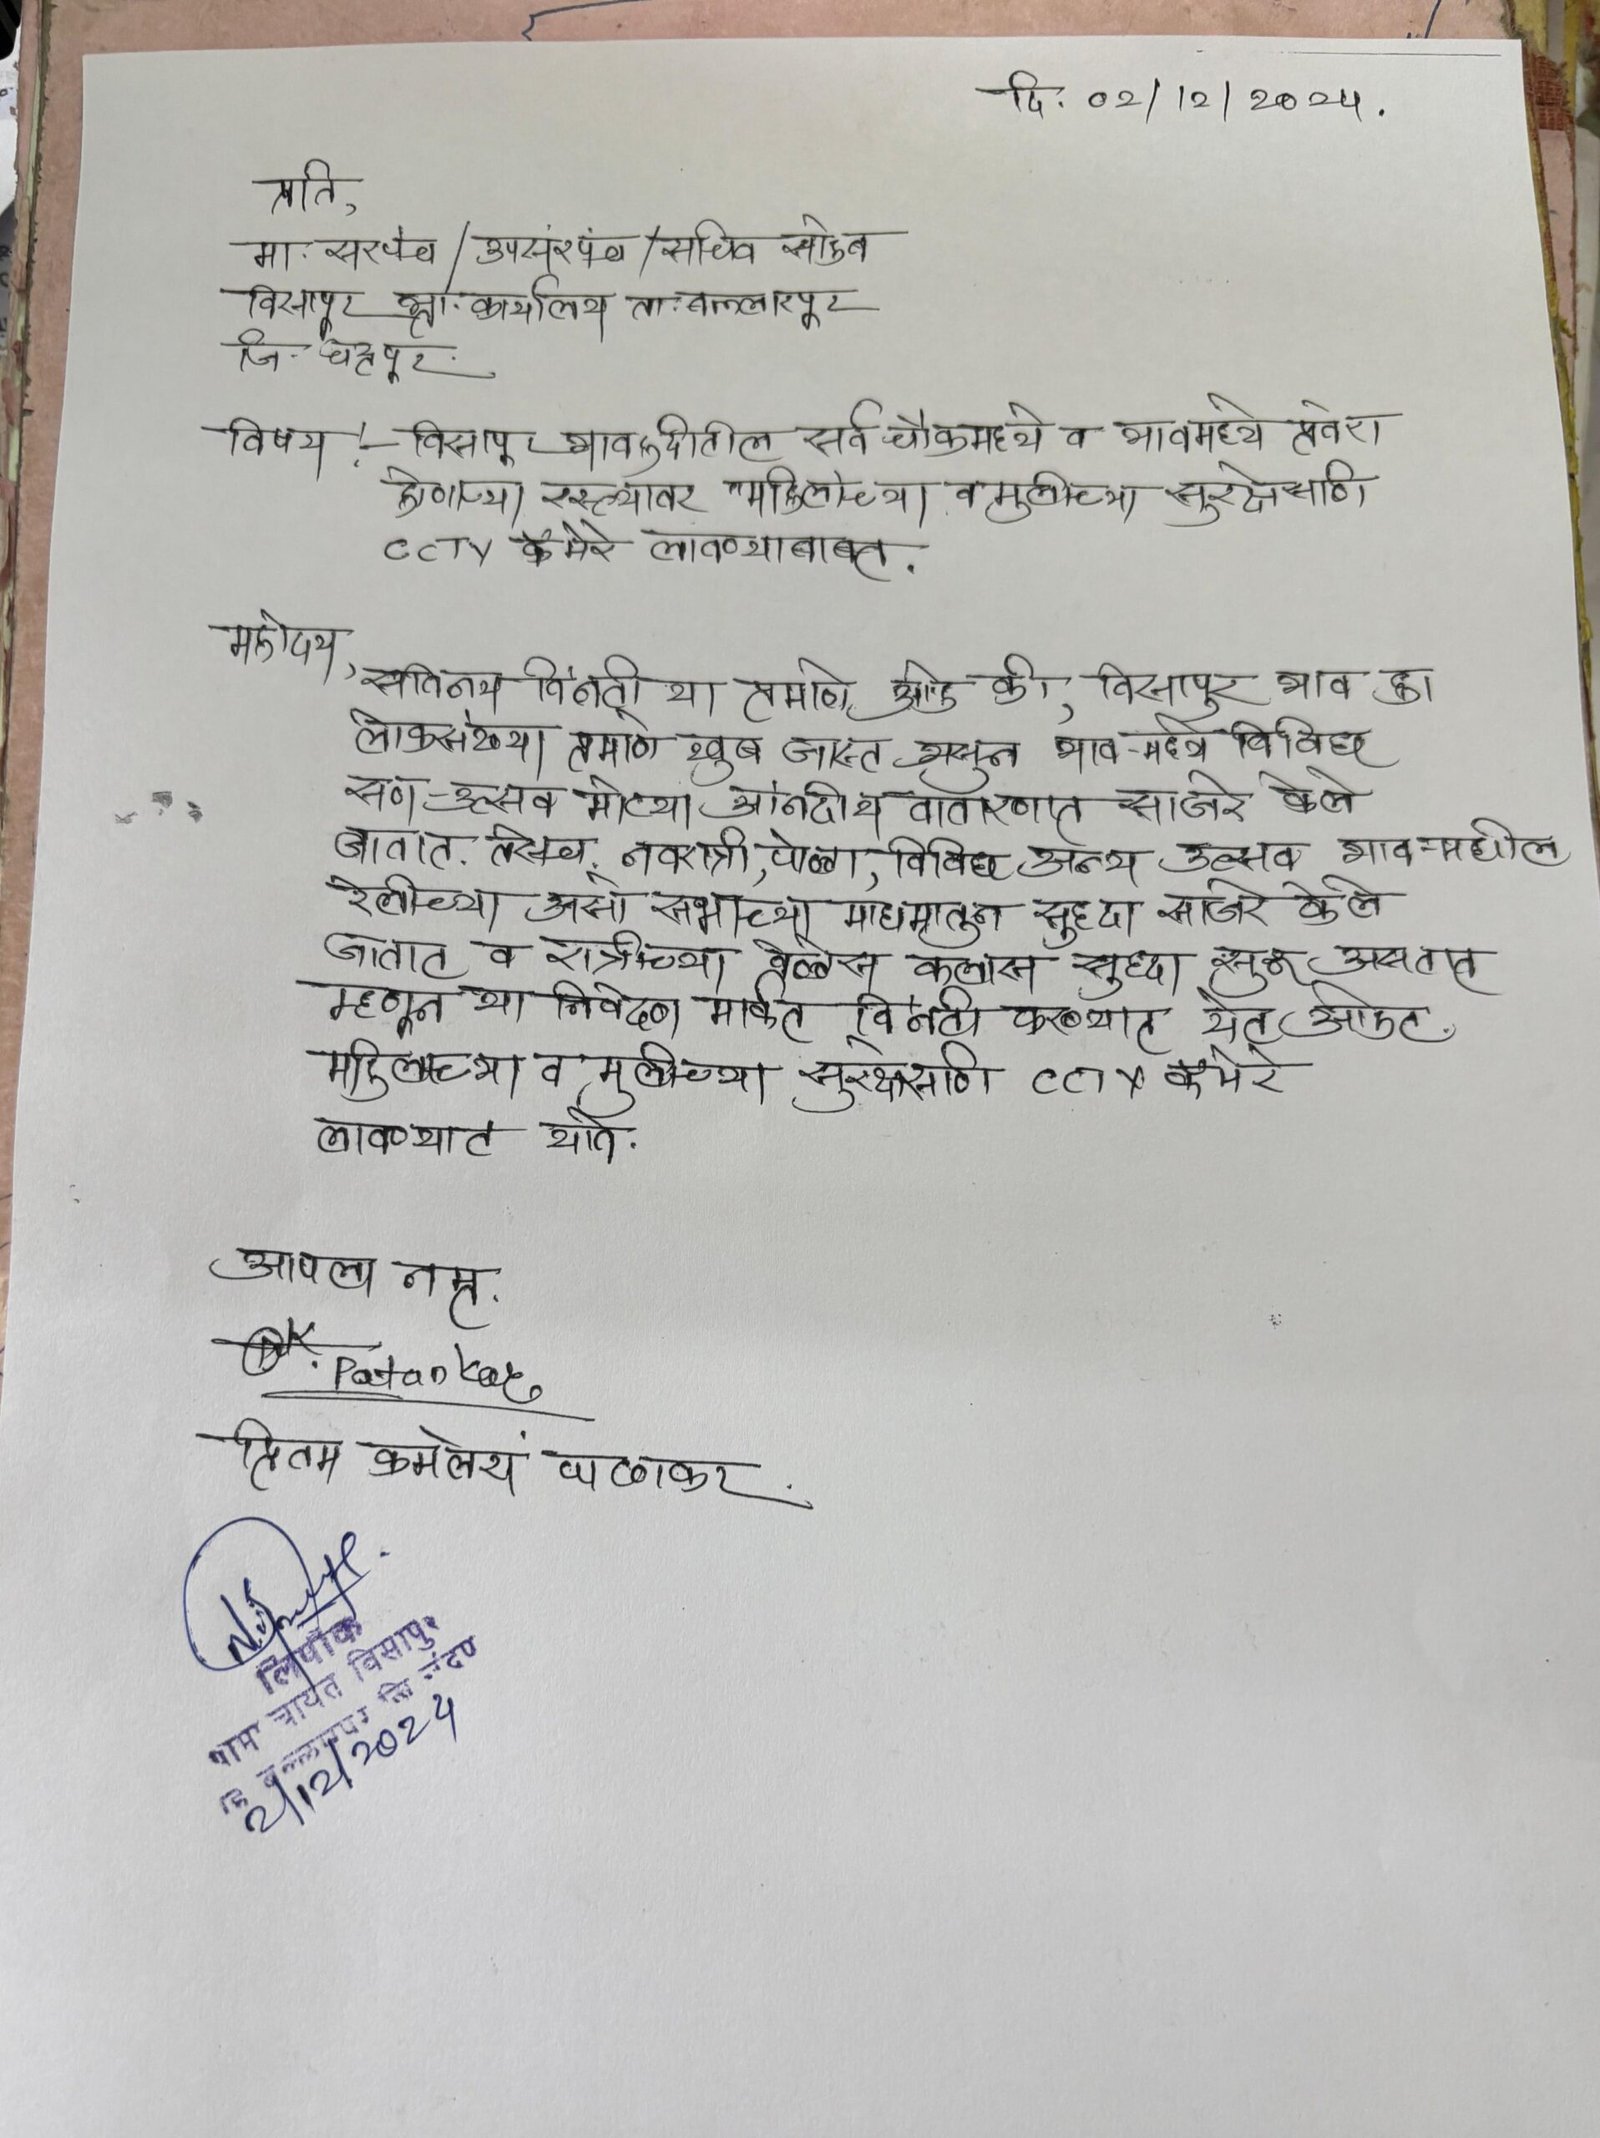 दि. ०२/१२/२०२५.
प्रति,
मा. सरपंच / उपसंरपंच / सचिव साहेब
विसापूर ग्रा. कार्यालय ता. बल्लारपूर
जि. चंद्रपूर.
विषय :- विसापूर गाव हद्दीतील सर्व चौकामध्ये व गावमध्ये प्रवेश
होणाऱ्या रस्त्यावर महिलांच्या व मुलींच्या सुरक्षेसाठि
CCTV कॅमेरे लावण्याबाबत.
महोदय,
सविनय विनंती या प्रमाणे आहे की, विसापुर गाव हा
लोकसंख्या प्रमाणे खुब जास्त असुन गाव-मध्ये विविध
सण-उत्सव मोठ्या आंनदीय वातारणात साजरे केले
जातात. तसेच, नवरात्री, पोळा, विविध अन्य उत्सव गाव-मधील
रेलीच्या असो सभाच्या माध्यमातुन सुद्धा साजरे केले
जातात व रात्रीच्या वेळेस कलास सुध्दा सुरू असतात
म्हणून या निवेदण मार्फत विनंती करण्यात येत आहेत.
महिलांच्या व मुलींच्या सुरक्षेसाठि CCTV कॅमेरे
लावण्यात यावे.
आपला नम्र.
PK. Patankar
प्रितम कमलेश पाटणकर.
लिपीक
ग्राम पंचायत विसापुर
बल्लारपुर जि. चंद्रपुर
2/12/2025